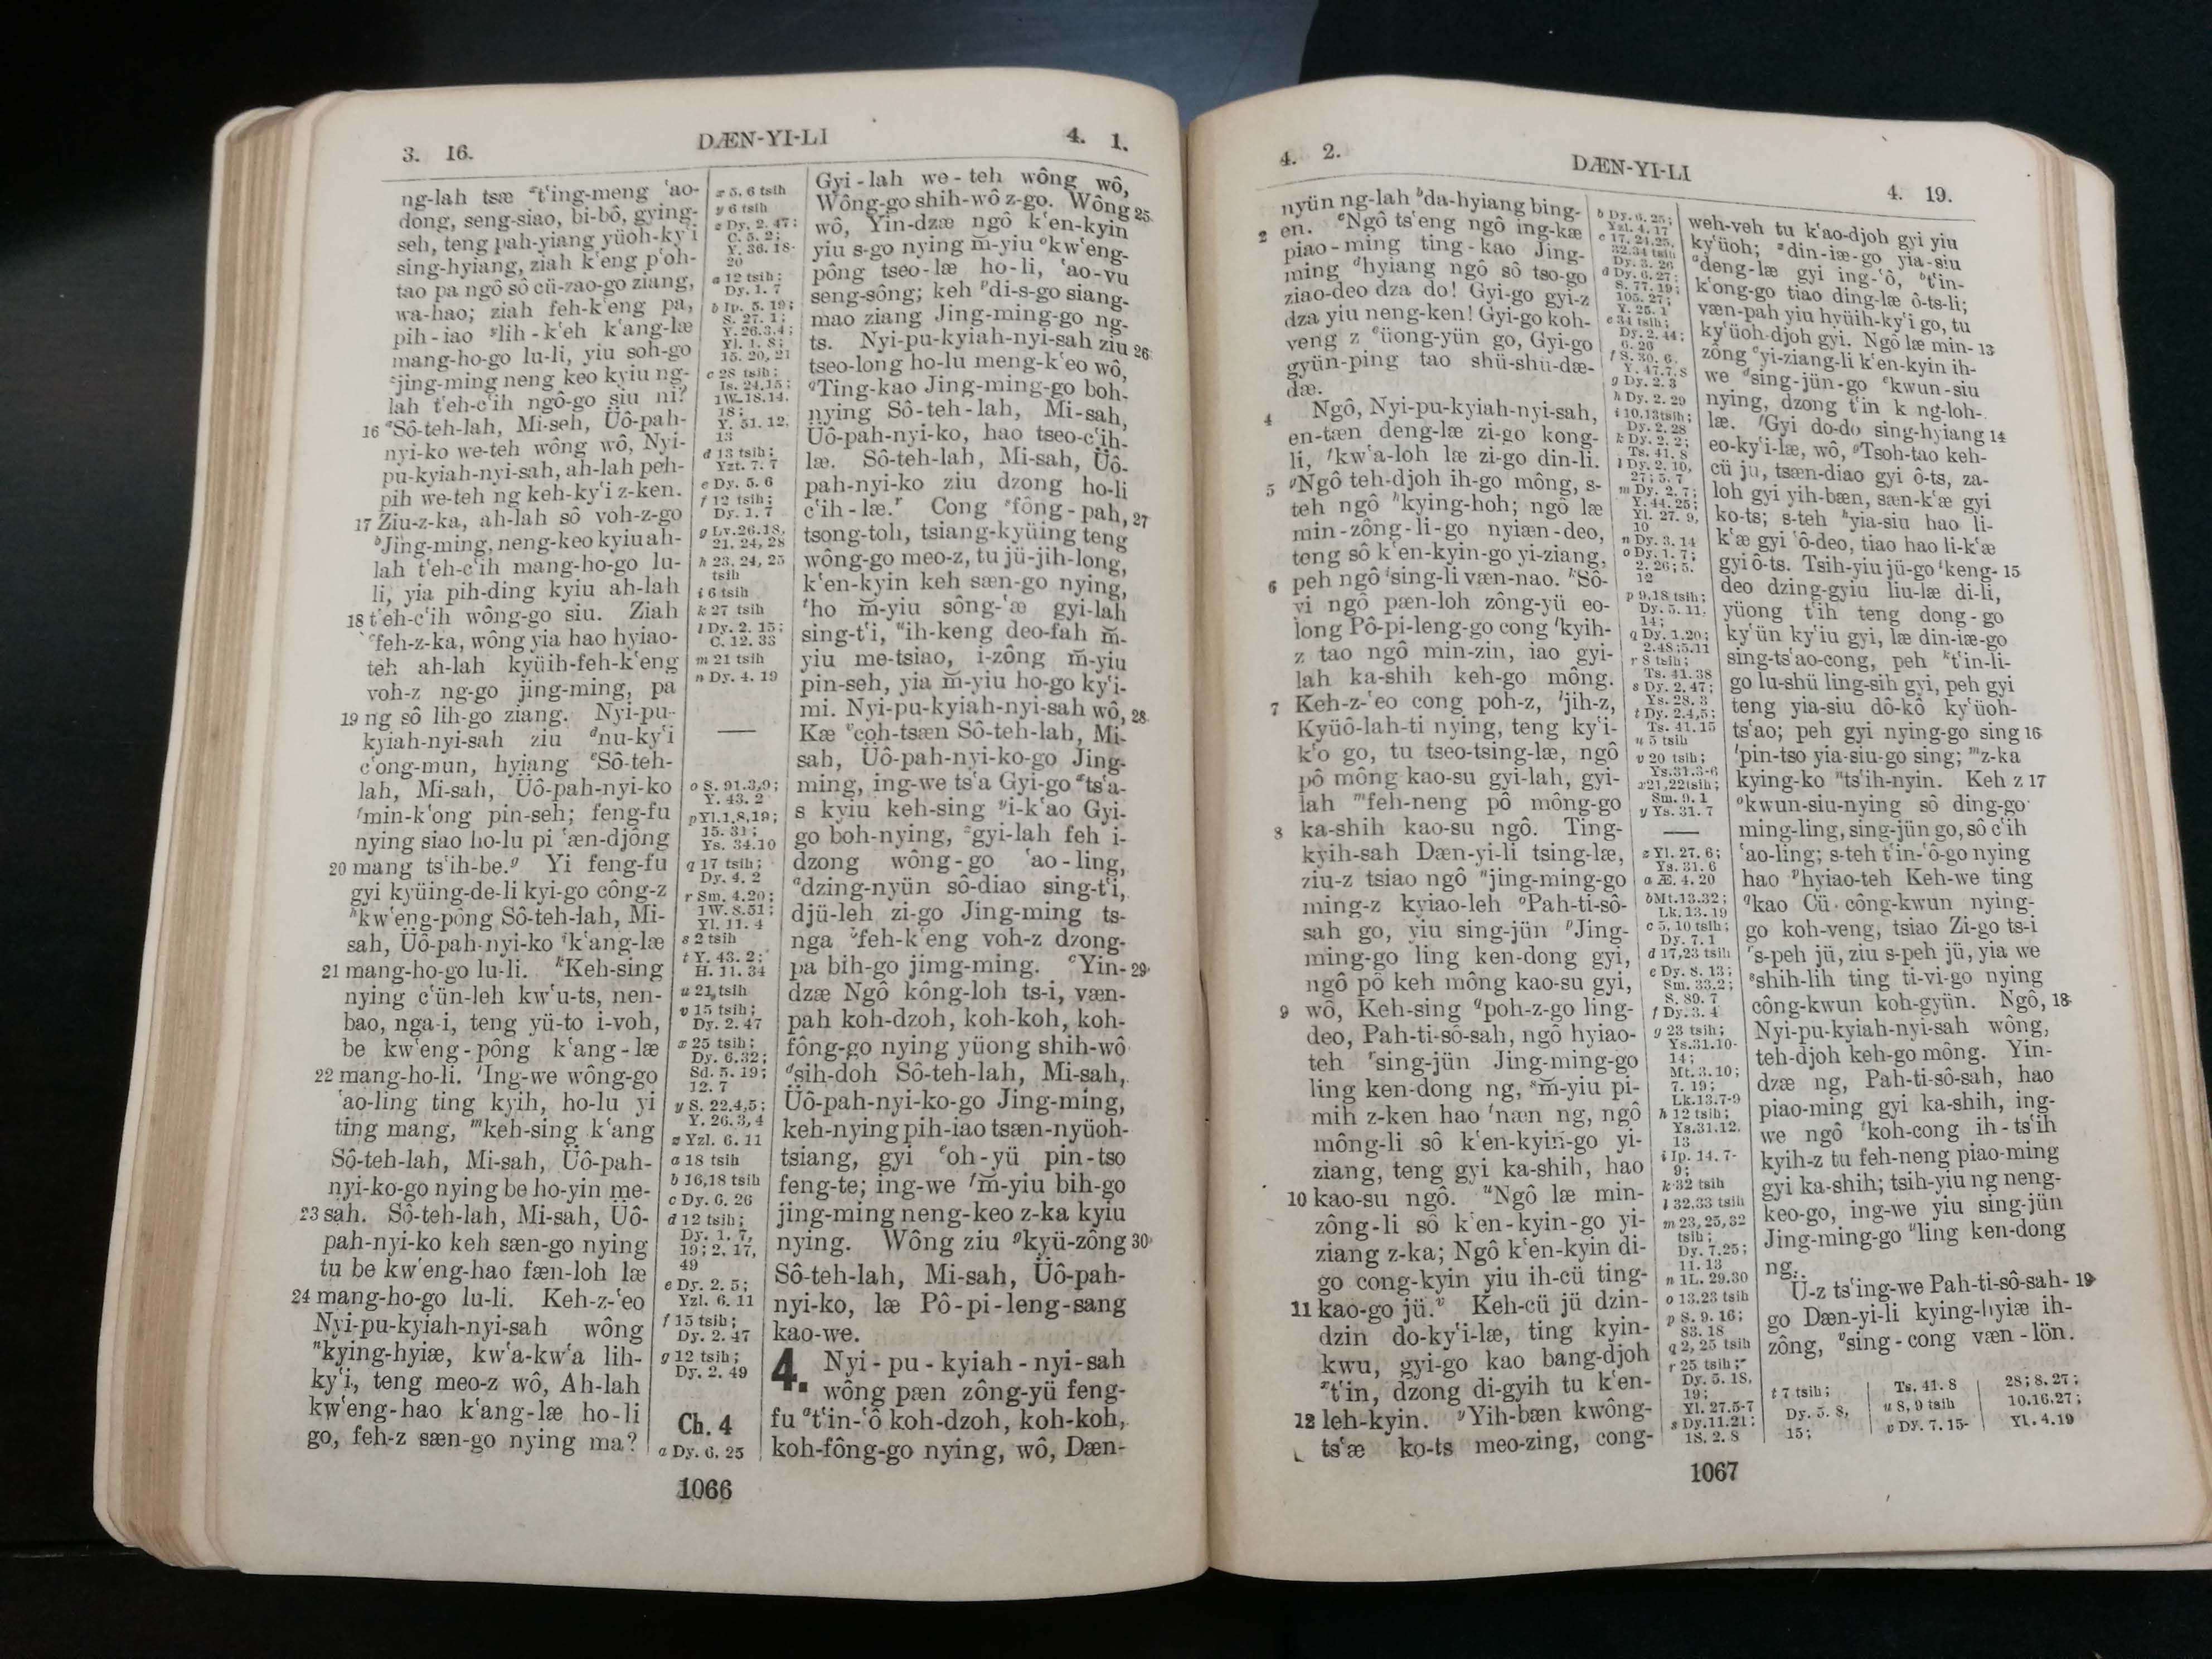 3. 16.
DÆN-YI-LI
4. 1.
ng-lah tsæ ˣt‘ing-meng ‘ao-
dong, seng-siao, bi-bô, gying-
seh, teng pah-yiang yüoh-ky‘i
sing-hyiang, ziah k‘eng p‘oh-
tao pa ngô sô cü-zao-go ziang,
wa-hao; ziah feh-k‘eng pa,
pih-iao ʸlih-k‘eh k‘ang-læ
mang-ho-go lu-li, yiu soh-go
ᶻjing-ming neng keo kyiu ng-
lah t‘eh-c‘ih ngô-go siu ni?
16 ᵃSô-teh-lah, Mi-seh, Üô-pah-
nyi-ko we-teh wông wô, Nyi-
pu-kyiah-nyi-sah, ah-lah peh-
pih we-teh ng keh-ky‘i z-ken.
17 Ziu-z-ka, ah-lah sô voh-z-go
ᵇJing-ming, neng-keo kyiu ah-
lah t‘eh-c‘ih mang-ho-go lu-
li, yia pih-ding kyiu ah-lah
18 t‘eh-c‘ih wông-go siu. Ziah
ᶜfeh-z-ka, wông yia hao hyiao-
teh ah-lah kyüih-feh-k‘eng
voh-z ng-go jing-ming, pa
19 ng sô lih-go ziang. Nyi-pu-
kyiah-nyi-sah ziu ᵈnu-ky‘i
c‘ong-mun, hyiang ᵉSô-teh-
lah, Mi-sah, Üô-pah-nyi-ko
ᶠmin-k‘ong pin-seh; feng-fu
nying siao ho-lu pi ‘æn-djông
20 mang ts‘ih-be.ᵍ Yi feng-fu
gyi kyüing-de-li kyi-go công-z
ʰkw‘eng-pông Sô-teh-lah, Mi-
sah, Üô-pah-nyi-ko ⁱk‘ang-læ
21 mang-ho-go lu-li. ᵏKeh-sing
nying c‘ün-leh kw‘u-ts, nen-
bao, nga-i, teng yü-to i-voh,
be kw‘eng-pông k‘ang-læ
22 mang-ho-li. ˡIng-we wông-go
‘ao-ling ting kyih, ho-lu yi
ting mang, ᵐkeh-sing k‘ang
Sô-teh-lah, Mi-sah, Üô-pah-
nyi-ko-go nying be ho-yin me-
23 sah. Sô-teh-lah, Mi-sah, Üô-
pah-nyi-ko keh sæn-go nying
tu be kw‘eng-hao fæn-loh læ
24 mang-ho-go lu-li. Keh-z-‘eo
Nyi-pu-kyiah-nyi-sah wông
ⁿkying-hyiæ, kw‘a-kw‘a lih-
ky‘i, teng meo-z wô, Ah-lah
kw‘eng-hao k‘ang-læ ho-li
go, feh-z sæn-go nying ma?
x 5, 6 tsih
y 6 tsih
z Dy. 2. 47;
C. 5. 2;
Y. 36. 18-
20
a 12 tsih;
Dy. 1. 7
b Ip. 5. 19;
S. 27. 1;
Y. 26.3,4;
Yl. 1. 8;
15. 20, 21
c 28 tsih;
Is. 24.15;
1W.18.14,
18;
Y. 51. 12,
13
d 13 tsih;
Yzt. 7. 7
e Dy. 5. 6
f 12 tsih;
Dy. 1. 7
g Lv.26.18,
21, 24, 28
h 23, 24, 25
tsih
i 6 tsih
k 27 tsih
l Dy. 2. 15;
C. 12. 33
m 21 tsih
n Dy. 4. 19
o S. 91.3,9;
Y. 43. 2
p Yl.1.8,19;
15. 31;
Ys. 34.10
q 17 tsih;
Dy. 4. 2
r Sm. 4.20;
1W. 8.51;
Yl. 11. 4
s 2 tsih
t Y. 43. 2;
H. 11. 34
u 21, tsih
v 15 tsih;
Dy. 2. 47
x 25 tsih;
Dy. 6.32;
Sd. 5. 19;
12. 7
y S. 22.4,5;
Y. 26.3,4
z Yzl. 6. 11
a 18 tsih
b 16,18 tsih
c Dy. 6. 26
d 12 tsih;
Dy. 1. 7,
19; 2. 17,
49
e Dy. 2. 5;
Yzl. 6. 11
f 15 tsih;
Dy. 2. 47
g 12 tsih;
Dy. 2. 49
Ch. 4
a Dy. 6. 25
Gyi-lah we-teh wông wô,
Wông-go shih-wô z-go. Wông 25
wô, Yin-dzæ ngô k‘en-kyin
yiu s-go nying m̆-yiu ᵒkw‘eng-
pông tseo-læ ho-li, ‘ao-vu
seng-sông; keh ᵖdi-s-go siang-
mao ziang Jing-ming-go ng-
ts. Nyi-pu-kyiah-nyi-sah ziu 26
tseo-long ho-lu meng-k‘eo wô,
𐞥Ting-kao Jing-ming-go boh-
nying Sô-teh-lah, Mi-sah,
Üô-pah-nyi-ko, hao tseo-c‘ih-
læ. Sô-teh-lah, Mi-sah, Üô-
pah-nyi-ko ziu dzong ho-li
c‘ih-læ.ʳ Cong ˢfông-pah, 27
tsong-toh, tsiang-kyüing teng
wông-go meo-z, tu jü-jih-long,
k‘en-kyin keh sæn-go nying,
ᵗho m̆-yiu sông-‘æ gyi-lah
sing-t‘i, ᵘih-keng deo-fah m̆-
yiu me-tsiao, i-zông m̆-yiu
pin-seh, yia m̆-yiu ho-go ky‘i-
mi. Nyi-pu-kyiah-nyi-sah wô, 28
Kæ ᵛcoh-tsæn Sô-teh-lah, Mi-
sah, Üô-pah-nyi-ko-go Jing-
ming, ing-we ts‘a Gyi-go ˣts‘a-
s kyiu keh-sing ʸi-k‘ao Gyi-
go boh-nying, ᶻgyi-lah feh i-
dzong wông-go ‘ao-ling,
ᵃdzing-nyün sô-diao sing-t‘i,
djü-leh zi-go Jing-ming ts-
nga ᵇfeh-k‘eng voh-z dzong-
pa bih-go jimg-ming. ᶜYin- 29
dzæ Ngô kông-loh ts-i, væn-
pah koh-dzoh, koh-koh, koh-
fông-go nying yüong shih-wô
ᵈsih-doh Sô-teh-lah, Mi-sah,
Üô-pah-nyi-ko-go Jing-ming,
keh-nying pih-iao tsæn-nyüoh-
tsiang, gyi ᵉoh-yü pin-tso
feng-te; ing-we ᶠm̆-yiu bih-go
jing-ming neng-keo z-ka kyiu
nying. Wông ziu ᵍkyü-zông 30
Sô-teh-lah, Mi-sah, Üô-pah-
nyi-ko, læ Pô-pi-leng-sang
kao-we.
4. Nyi-pu-kyiah-nyi-sah
wông pæn zông-yü feng-
fu ᵃt‘in-‘ô koh-dzoh, koh-koh,
koh-fông-go nying, wô, Dæn-
1066
4. 2.
DÆN-YI-LI
4. 19.
nyün ng-lah ᵇda-hyiang bing-
2 en. ᶜNgô ts‘eng ngô ing-kæ
piao-ming ting-kao Jing-
ming ᵈhyiang ngô sô tso-go
ziao-deo dza do! Gyi-go gyi-z
dza yiu neng-ken! Gyi-go koh-
veng z ᵉüong-yün go, Gyi-go
gyün-ping tao shü-shü-dæ-
dæ.
4 Ngô, Nyi-pu-kyiah-nyi-sah,
en-tæn deng-læ zi-go kong-
li, ᶠkw‘a-loh læ zi-go din-li.
5 ᵍNgô teh-djoh ih-go mông, s-
teh ngô ʰkying-hoh; ngô læ
min-zông-li-go nyiæn-deo,
teng sô k‘en-kyin-go yi-ziang,
6 peh ngô ⁱsing-li væn-nao. ᵏSô-
yi ngô pæn-loh zông-yü eo-
long Pô-pi-leng-go cong ˡkyih-
z tao ngô min-zin, iao gyi-
lah ka-shih keh-go mông.
7 Keh-z-‘eo cong poh-z, ˡjih-z,
Kyüô-lah-ti nying, teng ky‘i-
k‘o go, tu tseo-tsing-læ, ngô
pô mông kao-su gyi-lah, gyi-
lah ᵐfeh-neng pô mông-go
8 ka-shih kao-su ngô. Ting-
kyih-sah Dæn-yi-li tsing-læ,
ziu-z tsiao ngô ⁿjing-ming-go
ming-z kyiao-leh ᵒPah-ti-sô-
sah go, yiu sing-jün ᵖJing-
ming-go ling ken-dong gyi,
ngô pô keh mông kao-su gyi,
9 wô, Keh-sing 𐞥poh-z-go ling-
deo, Pah-ti-sô-sah, ngô hyiao-
teh ʳsing-jün Jing-ming-go
ling ken-dong ng, ˢm̆-yiu pi-
mih z-ken hao ᵗnæn ng, ngô
mông-li sô k‘en-kyin-go yi-
ziang, teng gyi ka-shih, hao
10 kao-su ngô. ᵘNgô læ min-
zông-li sô k‘en-kyin-go yi-
ziang z-ka; Ngô k‘en-kyin di-
go cong-kyin yiu ih-cü ting-
11 kao-go jü.ᵛ Keh-cü jü dzin-
dzin do-ky‘i-læ, ting kyin-
kwu, gyi-go kao bang-djoh
ˣt‘in, dzong di-gyih tu k‘en-
12 leh-kyin. ʸYih-bæn kwông-
ts‘æ ko-ts meo-zing, cong-
b Dy. 6. 25;
Yzl. 4. 17
c 17, 24,25,
32,34 tsih
Dy. 3. 26
d Dy. 6. 27;
S. 77. 19;
105. 27;
Y. 25. 1
e 34 tsih;
Dy. 2. 44;
6. 26
f S. 30. 6,
Y. 47.7,8
g Dy. 2. 3
h Dy. 2. 29
i 10,13tsih;
Dy. 2. 28
k Dy. 2. 2;
Ts. 41. 8
l Dy. 2. 10,
27; 5. 7
m Dy. 2. 7;
Y. 44. 25;
Yl. 27. 9,
10
n Dy. 3. 14
o Dy. 1. 7;
2. 26; 5.
12
p 9,18 tsih;
Dy. 5. 11,
14;
q Dy. 1.20;
2.48;5.11
r 8 tsih;
Ts. 41. 38
s Dy. 2. 47;
Ys. 28. 3
t Dy. 2.4,5;
Ts. 41. 15
u 5 tsih
v 20 tsih;
Ys.31.3-6
x21,22tsih;
Sm. 9. 1
y Ys. 31. 7
z Yl. 27. 6;
Ys. 31. 6
a Æ. 4. 20
bMt.13.32;
Lk. 13. 19
c 5, 10 tsih;
Dy. 7. 1
d 17,23 tsih
e Dy. 8. 13;
Sm. 33.2;
S. 89. 7
f Dy. 3. 4
g 23 tsih;
Ys.31.10-
14;
Mt. 3. 10;
7. 19;
Lk.13.7-9
h 12 tsih;
Ys.31.12,
13
i Ip. 14. 7-
9;
k 32 tsih
l 32,33 tsih
m 23, 25, 32
tsih;
Dy. 7.25;
11. 13
n 1L. 29.30
o 13,23 tsih
p S. 9. 16;
83. 18
q 2, 25 tsih
r 25 tsih;
Dy. 5. 18,
19;
Yl. 27.5-7
s Dy.11.21;
1S. 2. 8
weh-veh tu k‘ao-djoh gyi yiu
ky‘üoh; ᶻdin-iæ-go yia-siu
ᵃdeng-læ gyi ing-‘ô, ᵇt‘in-
k‘ong-go tiao ding-læ ô-ts-li;
væn-pah yiu hyüih-ky‘i go, tu
ky‘üoh-djoh gyi. Ngô læ min- 13
zông ᶜyi-ziang-li k‘en-kyin ih-
we ᵈsing-jün-go ᵉkwun-siu
nying, dzong t‘in k ng-loh-
læ. ᶠGyi do-do sing-hyiang 14
eo-ky‘i-læ, wô, ᵍTsoh-tao keh-
cü ju, tsæn-diao gyi ô-ts, za-
loh gyi yih-bæn, sæn-k‘æ gyi
ko-ts; s-teh ʰyia-siu hao li-
k‘æ gyi ‘ô-deo, tiao hao li-k‘æ
gyi ô-ts. Tsih-yiu jü-go ⁱkeng- 15
deo dzing-gyiu liu-læ di-li,
yüong t‘ih teng dong-go
ky‘ün ky‘iu gyi, læ din-iæ-go
sing-ts‘ao-cong, peh ᵏt‘in-li-
go lu-shü ling-sih gyi, peh gyi
teng yia-siu dô-kô ky‘üoh-
ts‘ao; peh gyi nying-go sing 16
ˡpin-tso yia-siu-go sing; ᵐz-ka
kying-ko ⁿts‘ih-nyin. Keh z 17
ᵒkwun-siu-nying sô ding-go
ming-ling, sing-jün go, sô c‘ih
‘ao-ling; s-teh t‘in-‘ô-go nying
hao ᵖhyiao-teh Keh-we ting
𐞥kao Cü công-kwun nying-
go koh-veng, tsiao Zi-go ts-i
ʳs-peh jü, ziu s-peh jü, yia we
ˢshih-lih ting ti-vi-go nying
công-kwun koh-gyün. Ngô, 18
Nyi-pu-kyiah-nyi-sah wông,
teh-djoh keh-go mông. Yin-
dzæ ng, Pah-ti-sô-sah, hao
piao-ming gyi ka-shih, ing-
we ngô ᵗkoh-cong ih-ts‘ih
kyih-z tu feh-neng piao-ming
gyi ka-shih; tsih-yiu ng neng-
keo-go, ing-we yiu sing-jün
Jing-ming-go ᵘling ken-dong
ng.
Ü-z ts‘ing-we Pah-ti-sô-sah- 19
go Dæn-yi-li kying-hyiæ ih-
zông, ᵛsing-cong væn-lön.
t 7 tsih;
Dy. 5. 8,
15;
Ts. 41. 8
u 8, 9 tsih
v Dy. 7. 15-
28; 8. 27;
10.16,27;
Yl. 4.19
1067